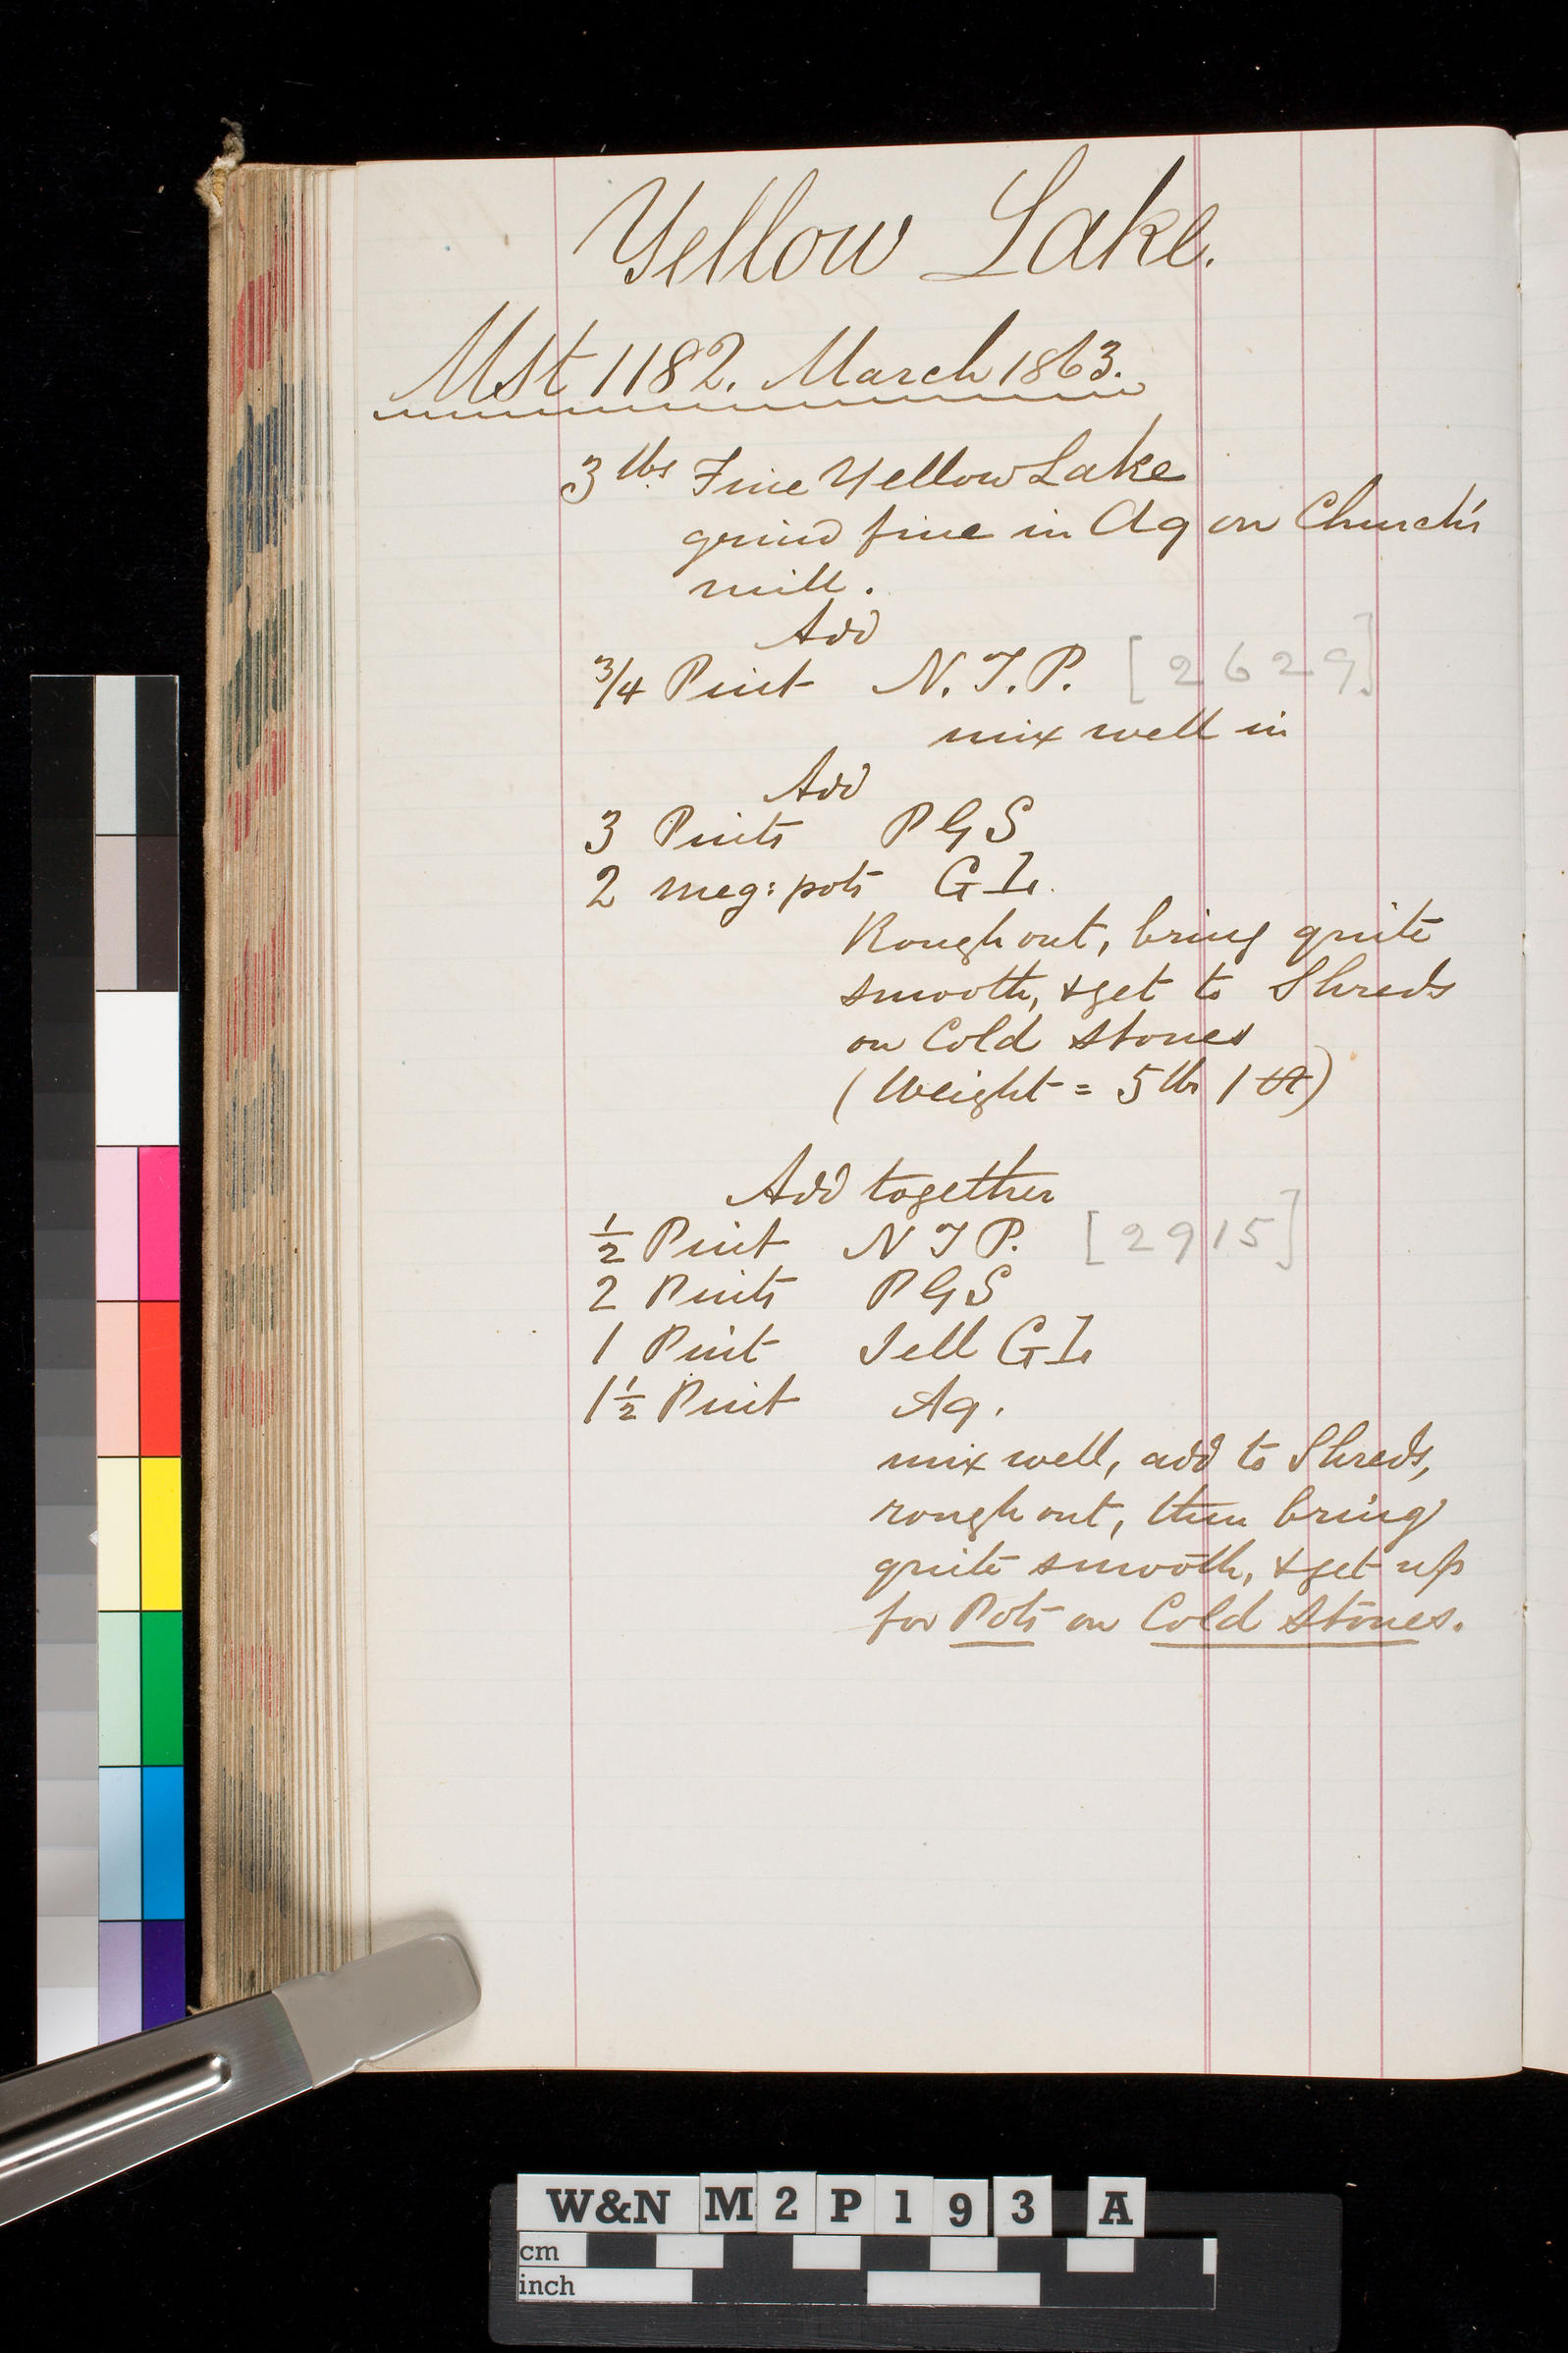 Yellow Lake.
Mst 1182. March 1863.
3 lbs Fine Yellow Lake
grind fine in Aq on Church's
mill.
Add
3/4 Pint N. T. P. [2629]
mix well in
Add
3 Pints P G S
2 meg: pots G I.
Rough out, bring quite
smooth, & get to Shreds
on Cold Stones
(Weight = 5 lbs 1
Add together
1/2 Pint N T P. [2915]
2 Pints P G S
1 Pint Jell G I.
1 1/2 Pint Aq.
mix well, add to Shreds,
rough out, then bring
quite smooth, & get up
for Pots on Cold Stones.
W&N M2P193 A
cm
inch